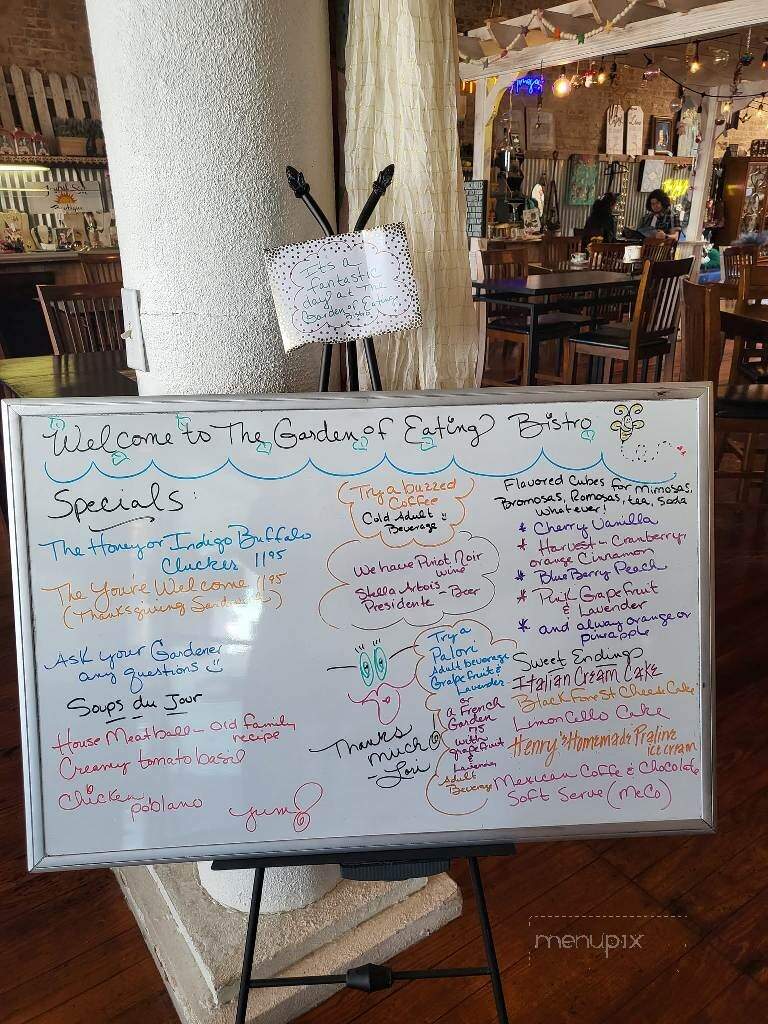 It's a
fantastic
day at The
Garden of Eating
Bistro
Welcome to The Garden of Eating Bistro
Specials:
The Honey or Indigo Buffalo
Cluckers 1195
The You're Welcome 1195
(Thanksgiving Sandwich)
Ask your Gardener
any questions
Soups du Jour
House Meatball - old family
recipe
Creamy tomato basil
Chicken
poblano
yum!
(Try a buzzed
Coffee
Cold Adult
Beverage
We have Pinot Noir
wine
Stella Artois
Presidente - Beer
Thanks
much
-Lori
Try a
Palori
Adult beverage
Grapefruit &
Lavender
or
a French
Garden
75
with
grapefruit
&
Lavender
Adult
Beverage
Flavored Cubes for Mimosas,
Bromosas, Romosas, tea, Soda
whatever!
* Cherry Vanilla
* Harvest - Cranberry,
orange Cinnamon
* Blue Berry Peach
* Pink Grapefruit
& Lavender
* and alway orange or
pineapple
Sweet Endings
Italian Cream Cake
Black Forest Cheese Cake
Limon Cello Cake
Henry's Homemade Praline
ice cream
Mexican Coffe & Chocolate
Soft Serve (MeCo)
menupix